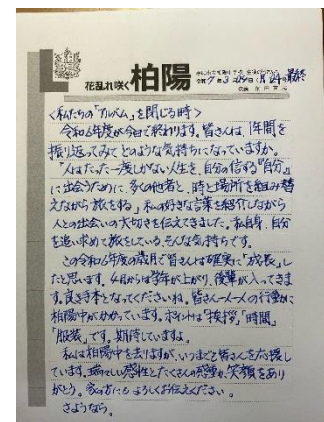 花乱れ咲く 柏陽
<私たちの「アルバム」を閉じる時>
令和6年度が今日で終わります。皆さんは、1年間を
振り返ってみてどのような気持ちになっていますか。
「人はたった一度しかない人生を、自分の信ずる『自分』
に出会うために、多くの他者と、時と場所を組み替
えながら旅をする」私の好きな言葉を紹介しながら
人との出会いの大切さを伝えてきました。私自身、自分
を追い求めて旅をしているそんな気持ちです。
この令和6年度の歳月で皆さんは確実に「成長」し
たと思います。4月からは学年が上がり、後輩が入ってきま
す。良き手本となってくださいね。皆さん一人一人の行動に
柏陽中がかかっています。ポイントは「挨拶」「時間」
「服装」です。期待していますよ。
私は柏陽中を去りますが、いつまでも皆さんを応援し
ています。瑞々しい感性とたくさんの感動、笑顔をあり
がとう。家の方にもよろしくお伝えください。
さようなら。